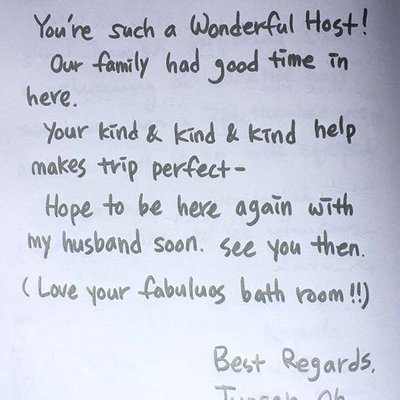 You're such a Wonderful Host!
Our family had good time in
here.
Your kind & kind & kind help
makes trip perfect-
Hope to be here again with
my husband soon. see you then.
(Love your fabuluos bath room!!)
Best Regards,